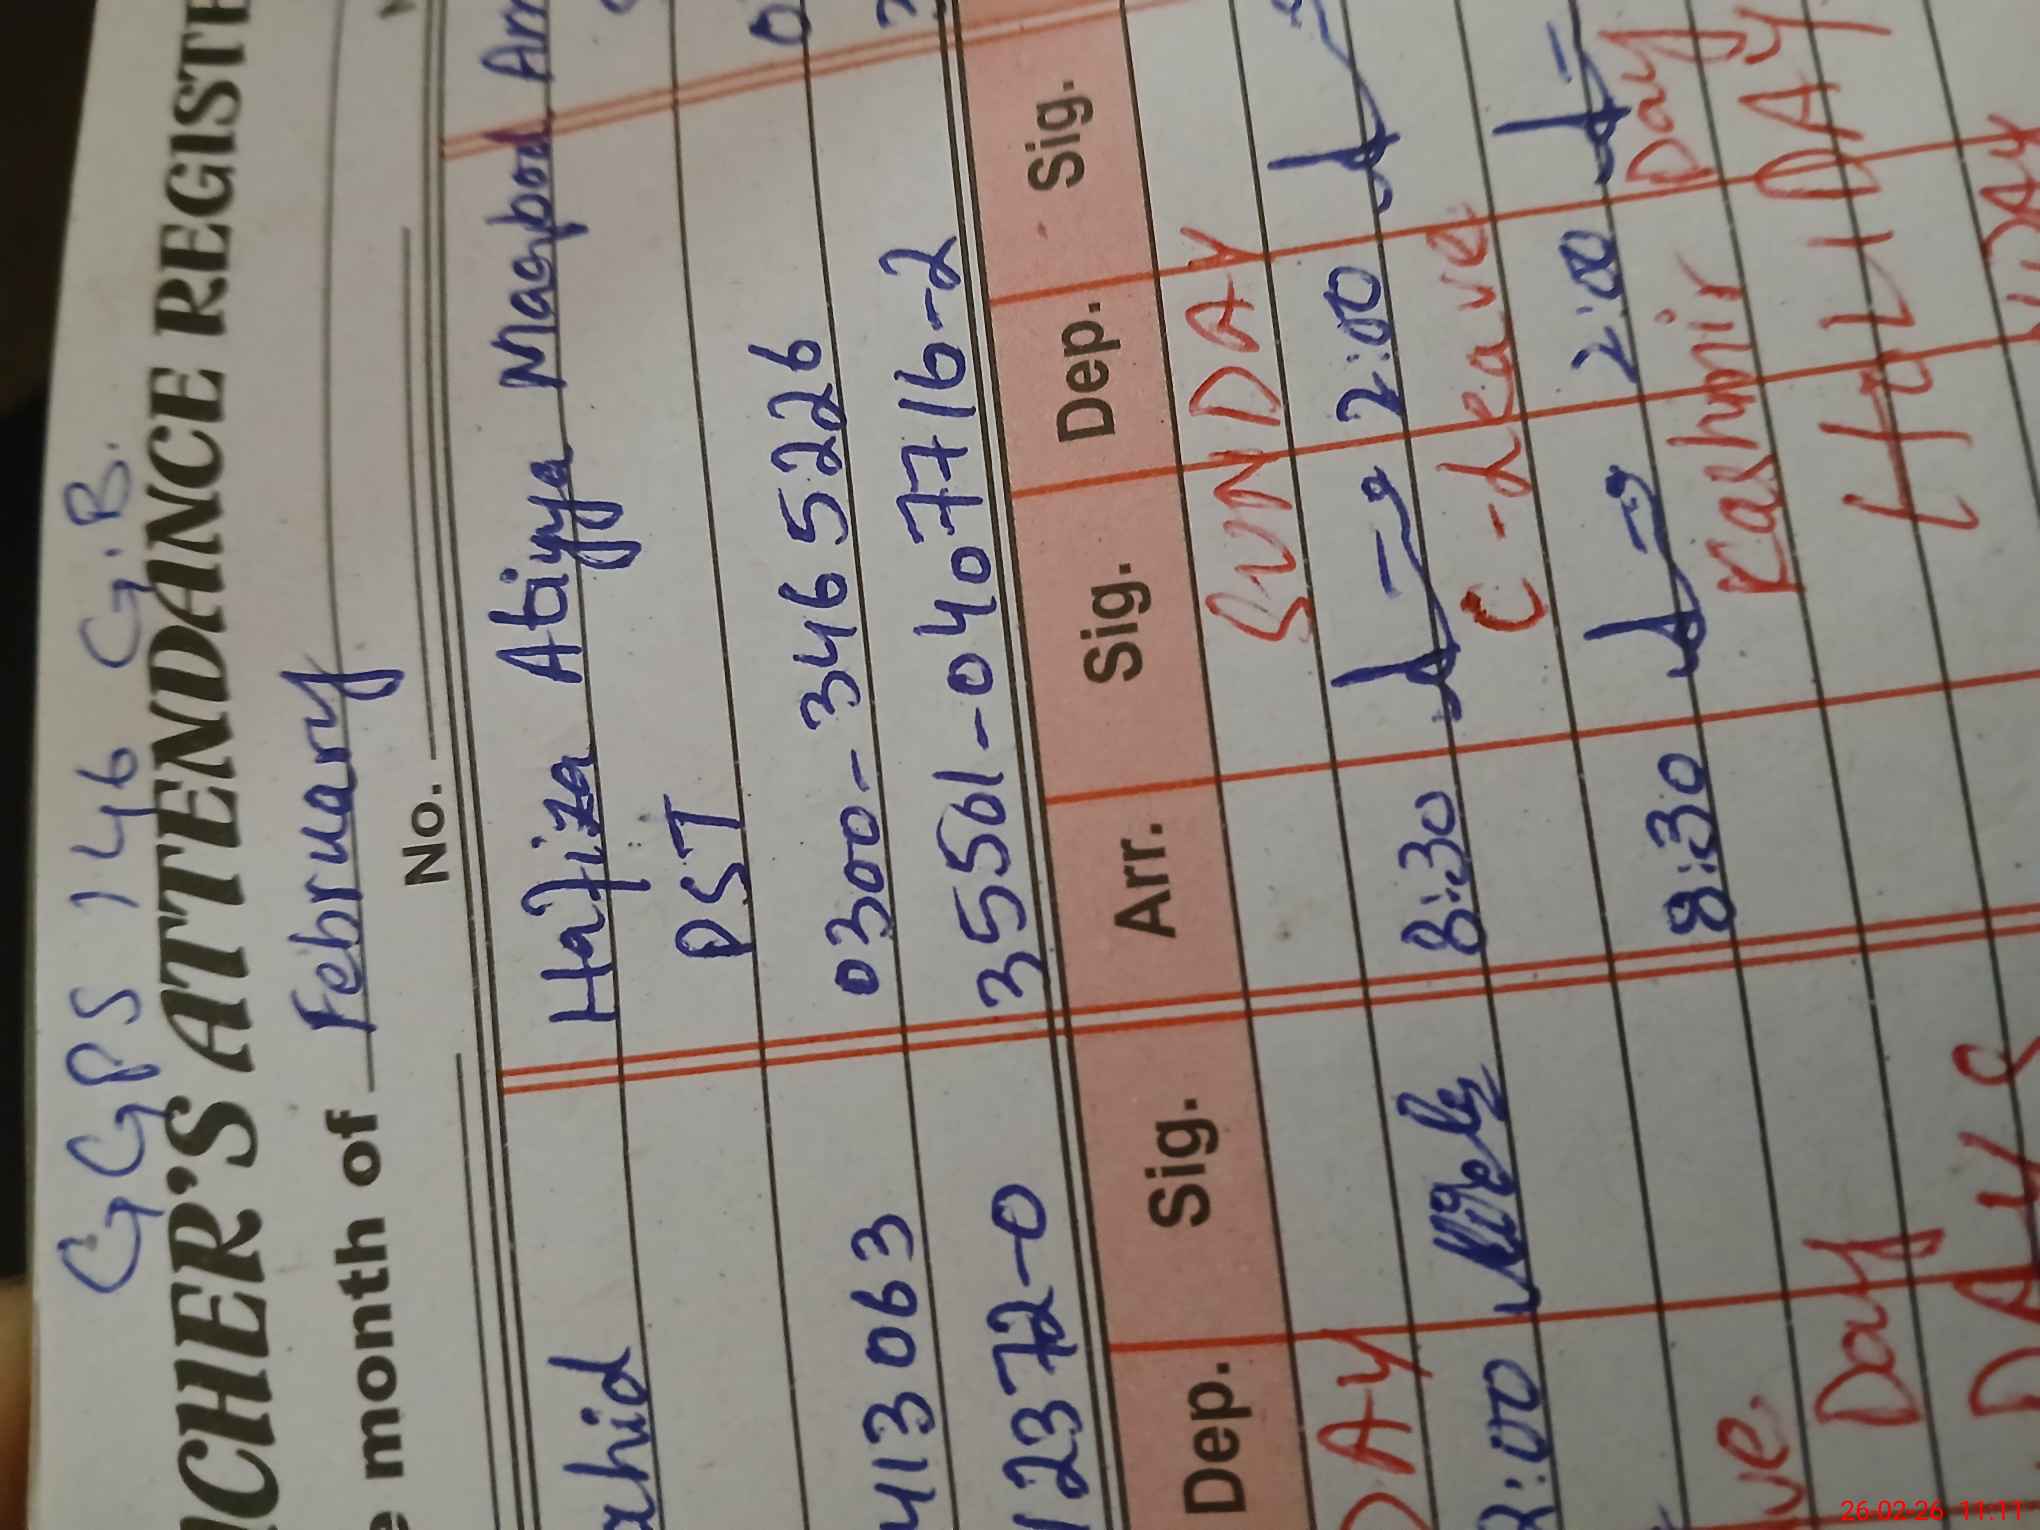 GGPS 146 G.B.
CHER'S ATTENDANCE REGISTE
e month of February
No.
ahid Hafiza Atiyya Maqbool Am
PST
413063 0300-3465226 0
12372-0 35501-0407716-2
Dep. Sig. Arr. Sig. Dep. Sig.
DAY SUNDAY
2:00 8:30 2:00
C-Leave
ve 8:30 2:00
Day Kashmir Day
DAY HOLIDAY
26-02-26 11:11